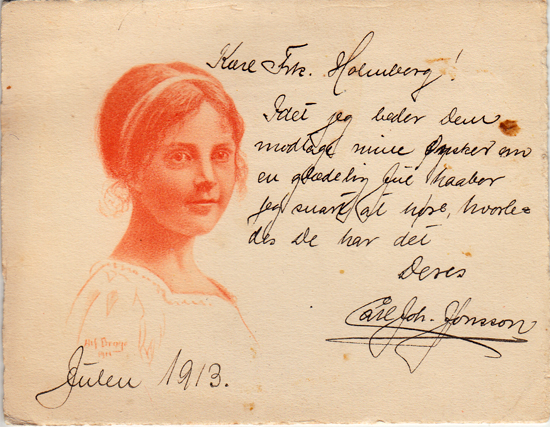 Kære Frk. Holmberg!
Idet jeg beder Dem
modtage mine Ønsker om
en glædelig Jul haaber
jeg snart at høre, hvorle=
des De har det
Deres
Carl Joh. Jonsson
Julen 1913.